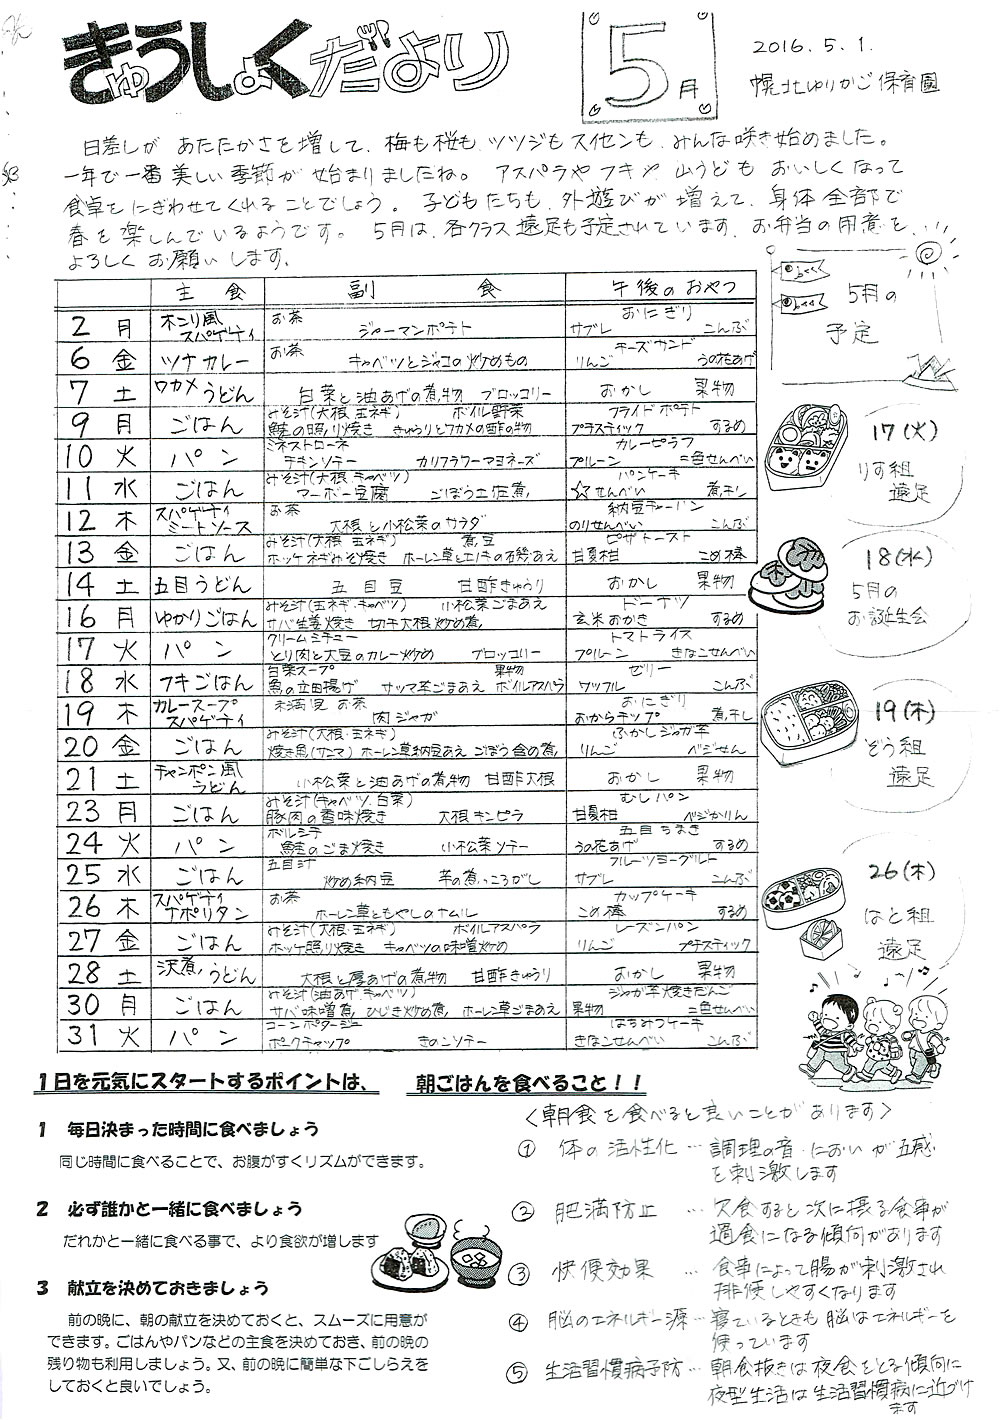 きゅうしょくだより
5月
2016.5.1.
幌北ゆりかご保育園
日差しが あたたかさを増して、梅も桜も、ツツジもスイセンも、みんな咲き始めました。
一年で一番美しい季節が始まりましたね。 アスパラやフキや山うども おいしくなって
食卓をにぎわせてくれることでしょう。 子どもたちも、外遊びが増えて、身体全部で
春を楽しんでいるようです。 5月は、各クラス遠足も予定されています。お弁当の用意を、
よろしくお願いします。
主食 副食 午後のおやつ
2 月 スパゲティ お茶 ジャーマンポテト おにぎり サブレ こんぶ
6 金 ツナカレー お茶 キャベツとジャコの炒めもの チーズサンド りんご うの花あげ
7 土 ワカメうどん 白菜と油あげの煮物 ブロッコリー おかし 果物
9 月 ごはん みそ汁(大根、玉ネギ) ボイル野菜 鮭の照り焼き きゅうりとワカメの酢の物 フライドポテト プラスティック するめ
10 火 パン ミネストローネ チキンソテー カリフラワーマヨネーズ カレーピラフ プルーン 二色せんべい
11 水 ごはん みそ汁(大根、キャベツ) マーボー豆腐 ごぼう土佐煮 パンケーキ ☆せんべい 煮干し
12 木 スパゲティミートソース お茶 大根と小松菜のサラダ 納豆チャーハン のりせんべい こんぶ
13 金 ごはん みそ汁(大根、玉ネギ) 煮豆 ホッケネギみそ焼き ホーレン草とエノキの磯あえ ピザトースト 甘夏柑 こめ棒
14 土 五目うどん 五目豆 甘酢きゅうり おかし 果物
16 月 ゆかりごはん みそ汁(玉ネギ、キャベツ) 小松菜ごまあえ サバ生姜焼き 切干大根炒め煮 ドーナツ 玄米おかき するめ
17 火 パン クリームシチュー とり肉と大豆のカレー炒め ブロッコリー トマトライス プルーン きなこせんべい
18 水 フキごはん 白菜スープ 果物 魚の立田揚げ サツマ芋ごまあえ ボイルアスパラ ゼリー ワッフル こんぶ
19 木 カレースープスパゲティ お茶 肉ジャガ おにぎり おからチップ 煮干し
20 金 ごはん みそ汁(大根・玉ネギ) 焼き魚(サンマ) ホーレン草納豆あえ ごぼう含め煮 ふかしジャガ芋 りんご ベジせん
21 土 チャンポン風うどん 小松菜と油あげの煮物 甘酢大根 おかし 果物
23 月 ごはん みそ汁(キャベツ、白菜) 豚肉の香味焼き 大根キンピラ むしパン 甘夏柑 ベジかりん
24 火 パン ボルシチ 鮭のごま焼き 小松菜ソテー 五目ちまき うの花あげ するめ
25 水 ごはん 五目汁 炒め納豆 芋の煮っころがし フルーツヨーグルト サブレ こんぶ
26 木 スパゲティナポリタン お茶 ホーレン草ともやしのナムル カップケーキ こめ棒 するめ
27 金 ごはん みそ汁(大根・玉ネギ) ボイルアスパラ ホッケ照り焼き キャベツの味噌炒め レーズンパン りんご プラスティック
28 土 沢煮うどん 大根と厚あげの煮物 甘酢きゅうり おかし 果物
30 月 ごはん みそ汁(油あげ、キャベツ) サバ味噌煮 ひじき炒め煮 ホーレン草ごまあえ ジャガ芋焼きだんご 果物 二色せんべい
31 火 パン コーンポタージュ ポークチャップ きのこソテー はちみつケーキ きなこせんべい こんぶ
5月の
予定
17(火)
りす組
遠足
18(水)
5月の
お誕生会
19(木)
ぞう組
遠足
26(木)
はと組
遠足
1日を元気にスタートするポイントは、 朝ごはんを食べること！！
1 毎日決まった時間に食べましょう
同じ時間に食べることで、お腹がすくリズムができます。
2 必ず誰かと一緒に食べましょう
だれかと一緒に食べる事で、より食欲が増します
3 献立を決めておきましょう
前の晩に、朝の献立を決めておくと、スムーズに用意が
できます。ごはんやパンなどの主食を決めておき、前の晩の
残り物も利用しましょう。又、前の晩に簡単な下ごしらえを
しておくと良いでしょう。
〈朝食を食べると良いことがあります〉
① 体の活性化 … 調理の音・においが五感
を刺激します
② 肥満防止 … 欠食すると次に摂る食事が
過食になる傾向があります
③ 快便効果 … 食事によって腸が刺激され
排便しやすくなります
④ 脳のエネルギー源 … 寝ているときも脳はエネルギーを
使っています
⑤ 生活習慣病予防 … 朝食抜きは夜食をとる傾向に
夜型生活は生活習慣病に近づけ
ます